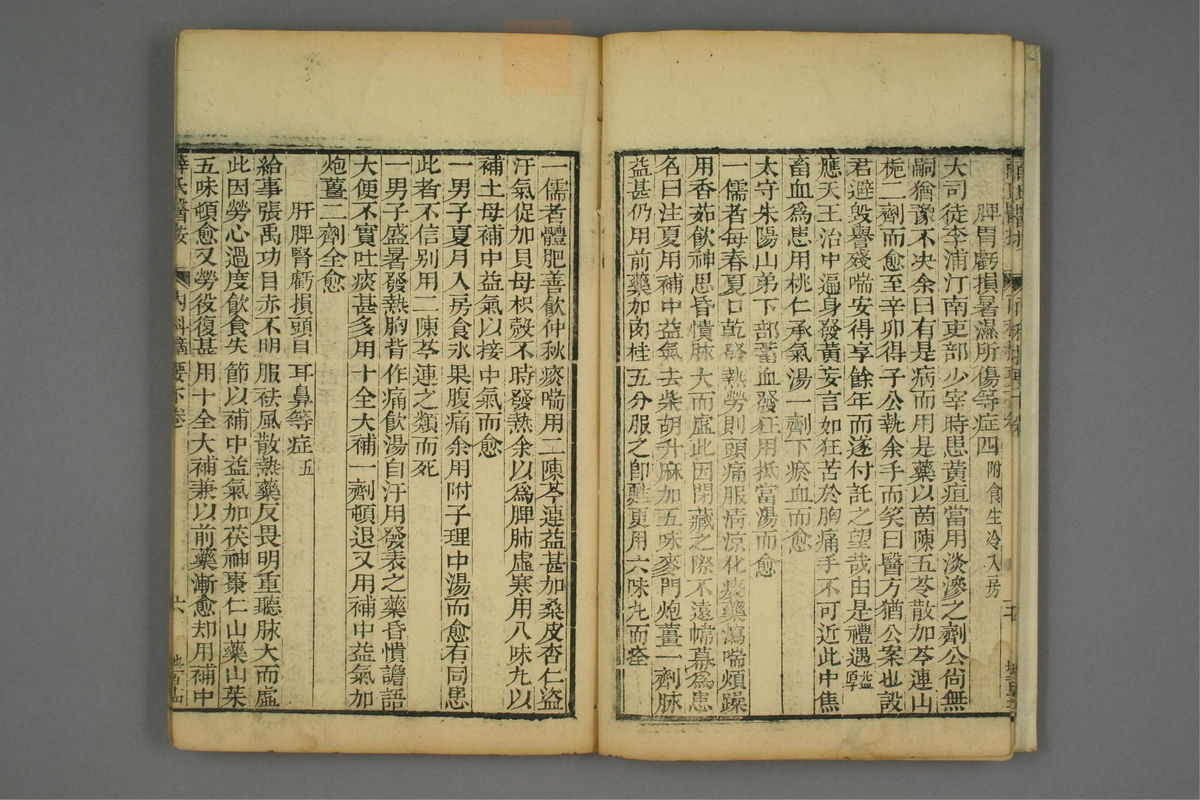 脾胃虧損暑濕所傷等症四 附食生冷入房
大司徒李浦汀南吏部少宰時患黃疸當用淡滲之劑公尚無
嗣猶豫不決余曰有是病而用是藥以茵陳五苓散加芩連山
梔二劑而愈至辛卯得子公執余手而笑曰醫方猶公案也設
君避毀譽殘喘安得享餘年而遂付託之望哉由是禮遇益厚
應天王治中遍身發黃妄言如狂苦於胸痛手不可近此中焦
畜血為患用桃仁承氣湯一劑下瘀血而愈
太守朱陽山弟下部蓄血發狂用抵當湯而愈
一儒者每春夏口乾發熱勞則頭痛服清涼化痰藥瀉喘煩躁
用香茹飲神思昏憒脉大而虛此因閉藏之際不遠幃幕為患
名曰注夏用補中益氣去柴胡升麻加五味麥門炮薑一劑脉
益甚仍用前藥加肉桂五分服之即甦更用六味丸而痊
一儒者體肥善飲仲秋痰喘用二陳芩連益甚加桑皮杏仁盜
汗氣促加貝母枳殼不時發熱余以為脾肺虛寒用八味丸以
補土母補中益氣以接中氣而愈
一男子夏月入房食氷果腹痛余用附子理中湯而愈有同患
此者不信別用二陳芩連之類而死
一男子盛暑發熱胸背作痛飲湯自汗用發表之藥昏憒譫語
大便不實吐痰甚多用十全大補一劑頓退又用補中益氣加
炮薑二劑全愈
肝脾腎虧損頭目耳鼻等症 五
給事張禹功目赤不明服祛風散熱藥反畏明重聽脉大而虛
此因勞心過度飲食失節以補中益氣加茯神棗仁山藥山茱
五味頓愈又勞役復甚用十全大補兼以前藥漸愈却用補中
薛氏醫按 內科摘要下卷 六